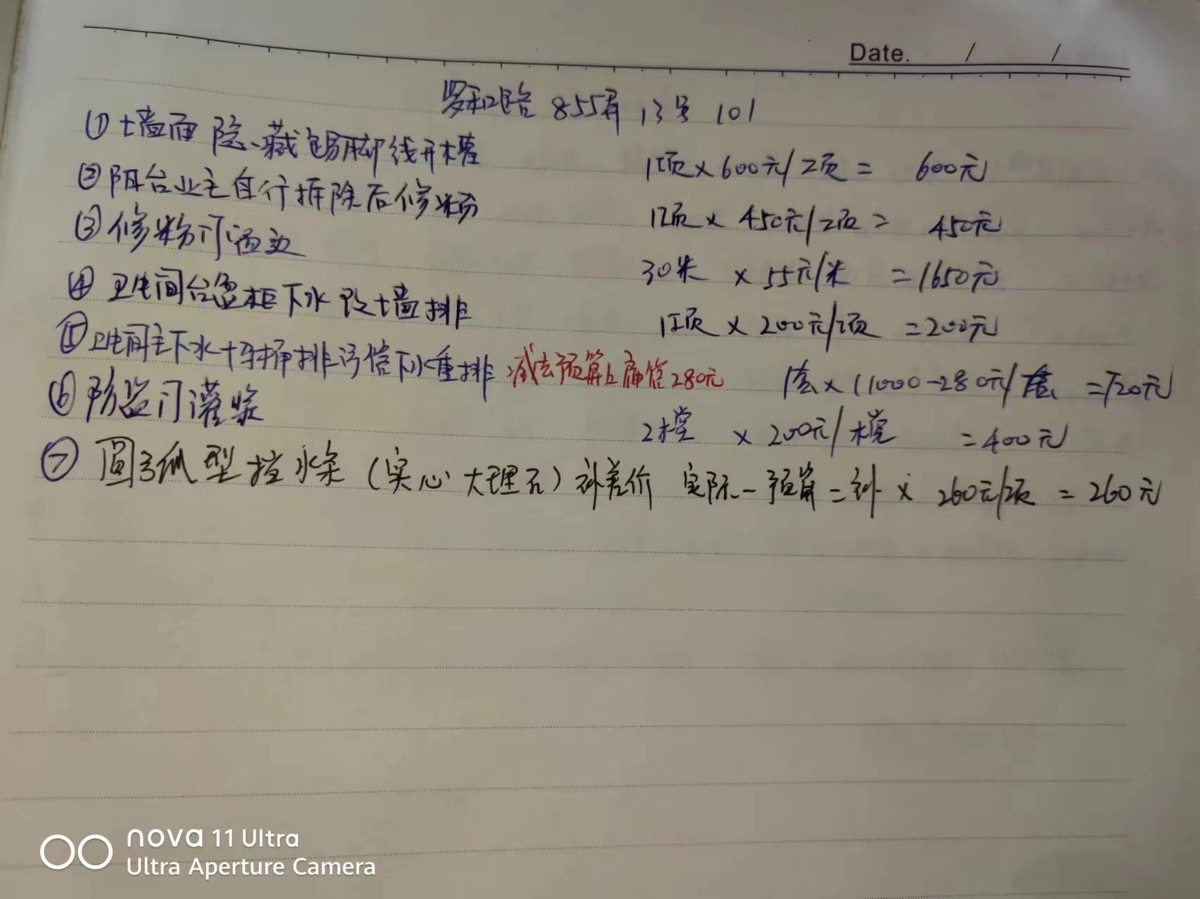 Date. / /
罗和路 855弄 13号 101
① 墙面隐藏踢脚线开槽 1项×600元/项= 600元
② 阳台业主自行拆除后修粉 1项× 450元/项= 450元
③ 修粉门洞边 30米 ×55元/米 =1650元
④ 卫生间台盆柜下水改墙排 1项×200元/项 =200元
⑤ 卫生间主下水+马桶排污管下水重排 减去预算上 280元 1套×(1000-280元/套 =720元
⑥ 防盗门灌浆 2樘 ×200元/樘 =400元
⑦ 圆弧型挡水条(实心大理石)补差价 实际-预算=补 × 260元/项 = 260元
nova 11 Ultra
Ultra Aperture Camera